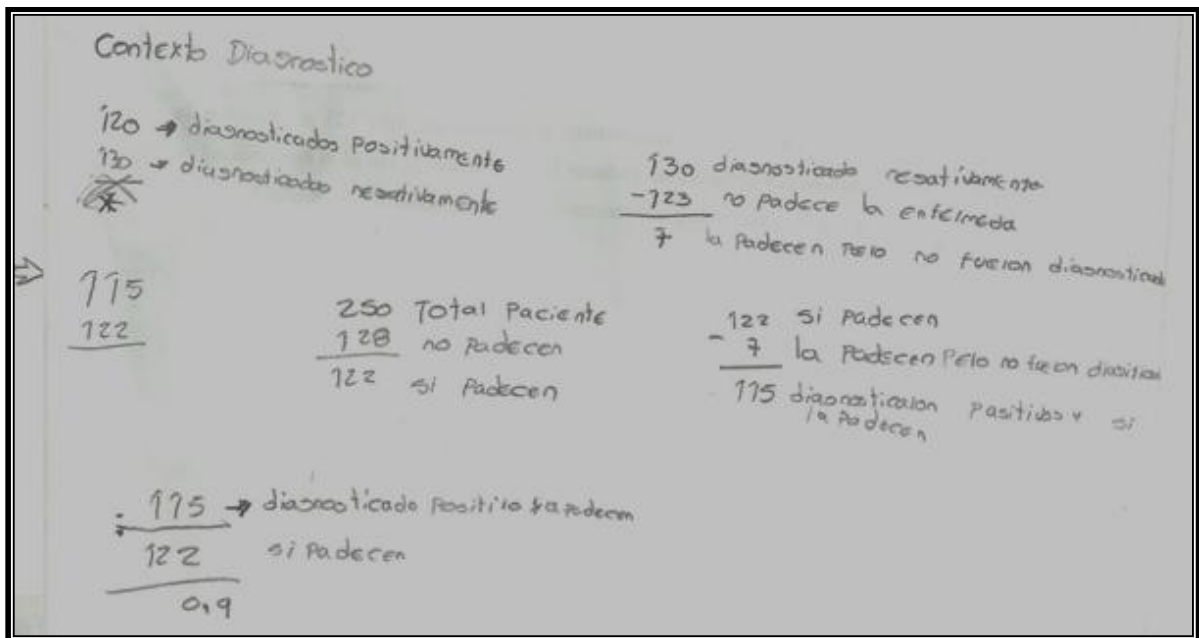 Contexto Diagnostico
120 → diagnosticados Positivamente
130 → diagnosticados negativamente
130 diagnosticado negativamente
-123 no padece la enfelmeda
7 la Padecen Pelo no fueron diagnosticad
⇒ 115
122
250 Total Paciente
128 no padecen
122 si Padecen
122 si Padecen
- 7 la Padecen Pelo no fueon
115 diagnosticaron Positivos y si
la Padecen
: 115 → diagnosticado Positivo
122 si Padecen
0,9